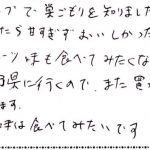 ップで巣ごもりを知りました
たら甘すぎずおいしかった
ーツ味も食べてみたくな
県に行くので、また買
ます。
味は食べてみたいです